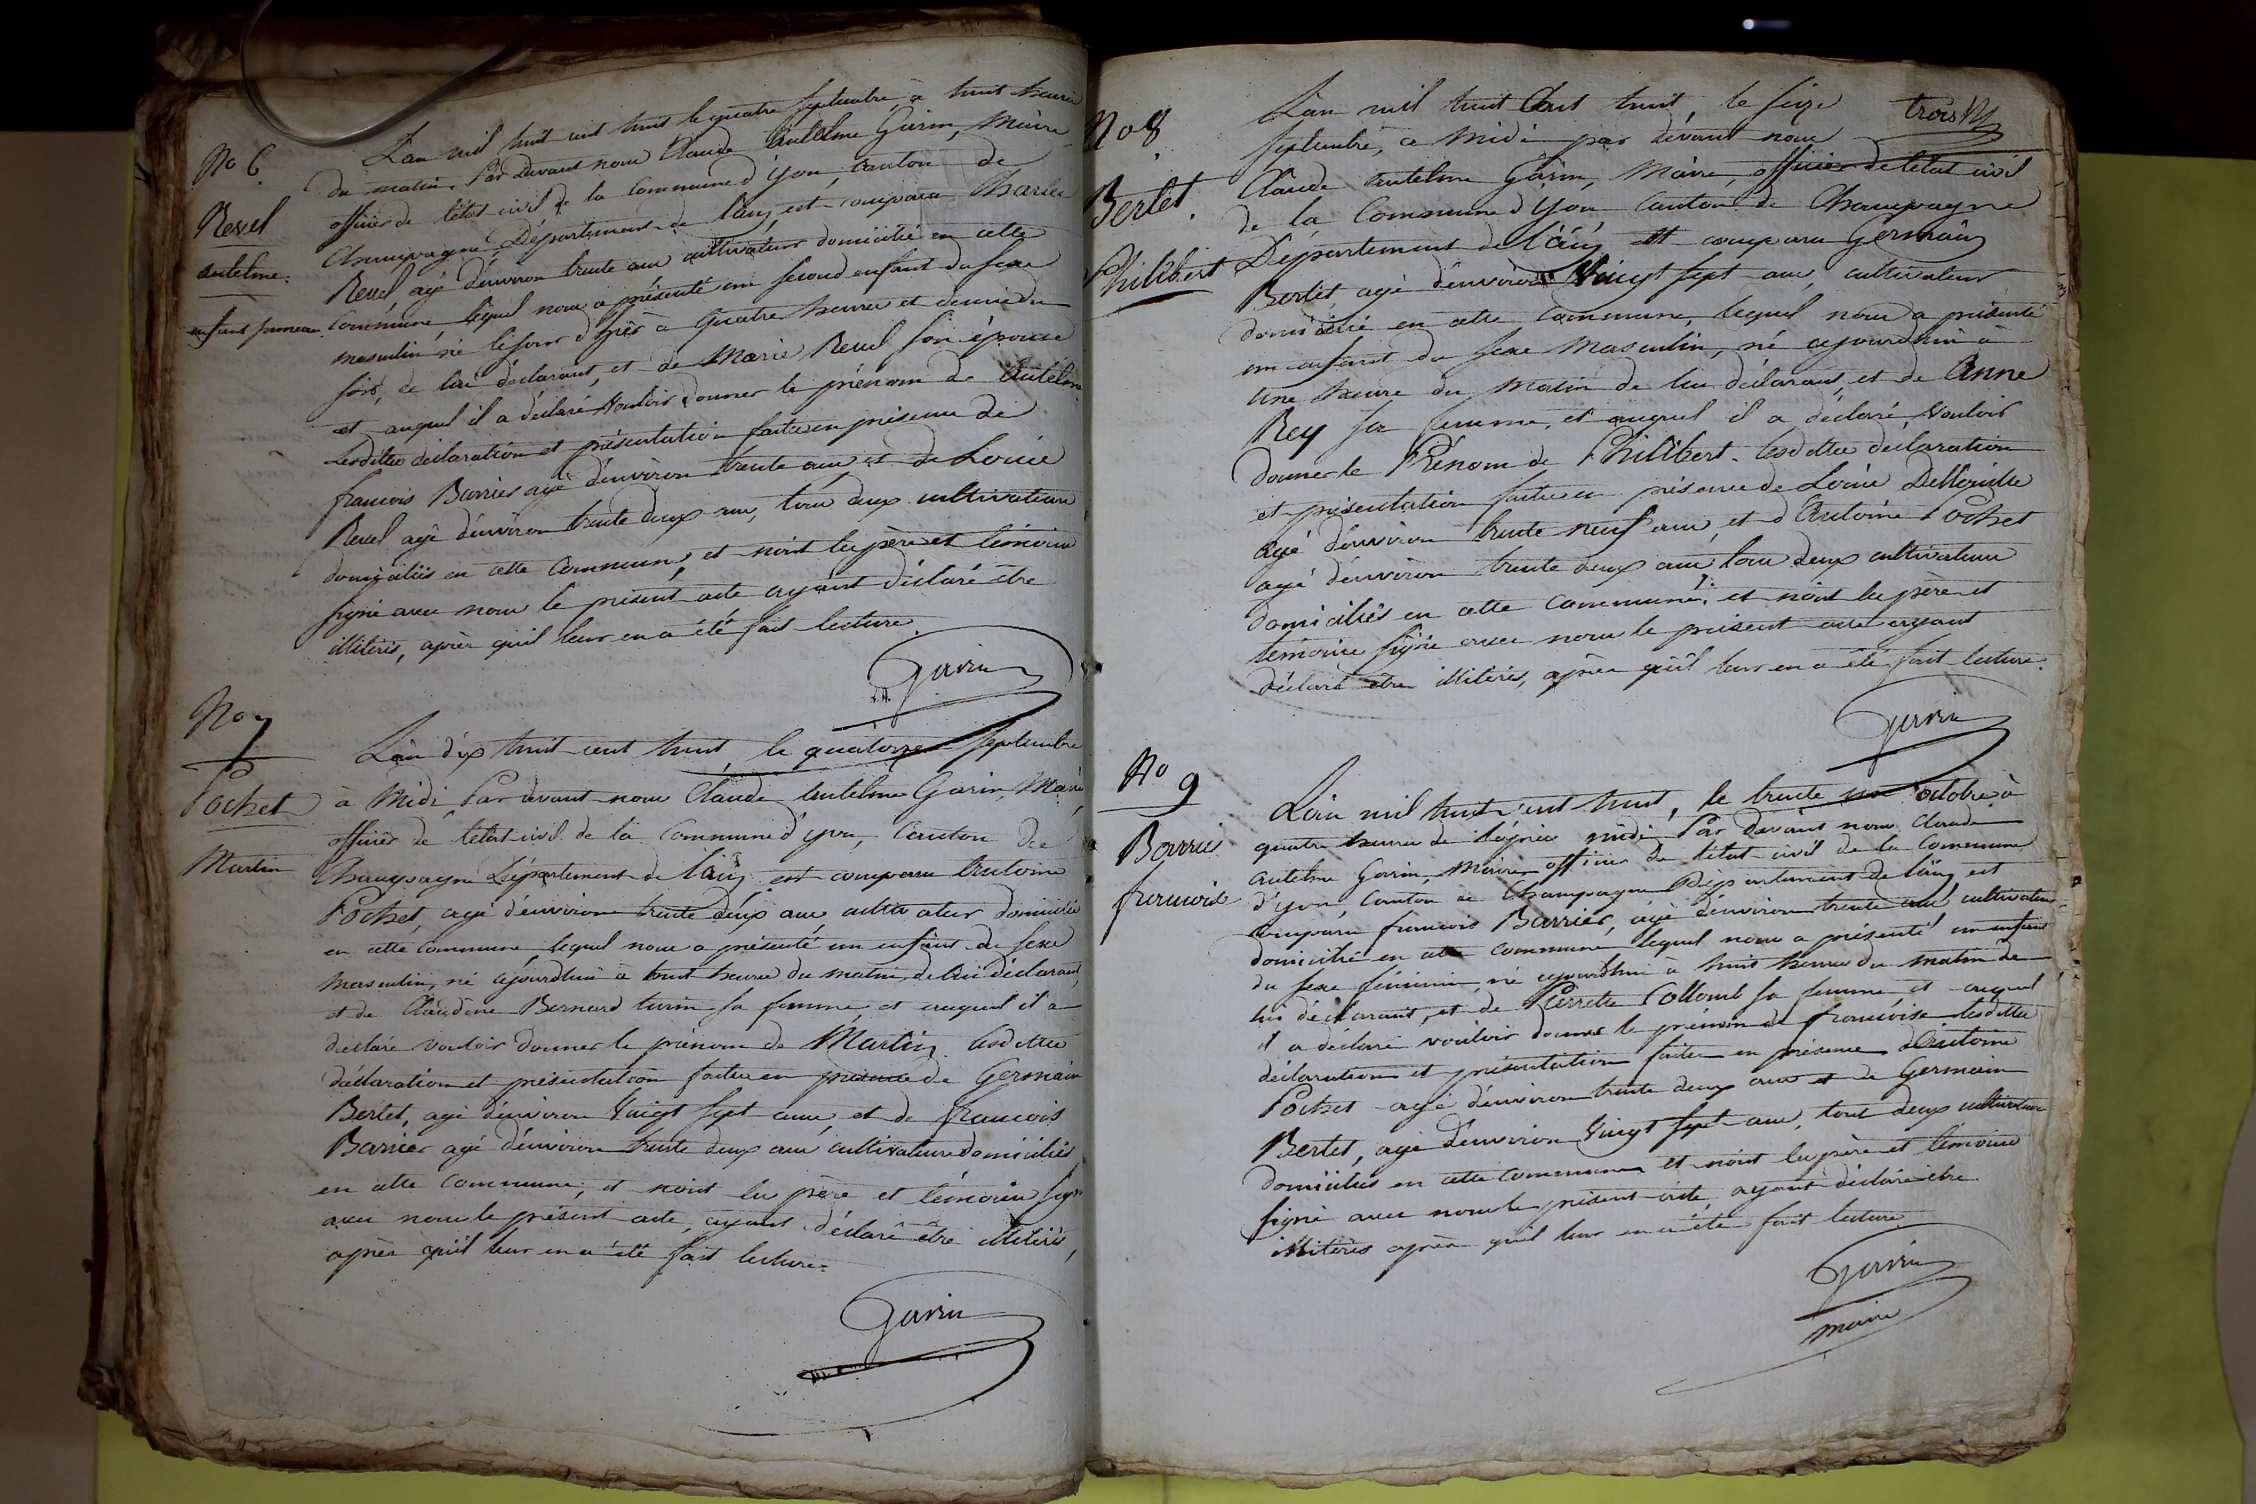 No 6
Revel
antelme.
enfant jumeau
L'an mil huit cent huit le quatre septembre à huit heures
du matin. Par devant nous Claude Antelme Garin, Maire
officier de l'état civil de la commune d'Yon, canton de
Champagne Département de l'ain, est comparu Charles
Revel, agé d'environ trente ans cultivateur domicilié en cette
Commune, lequel nous a présenté un second enfant du sexe
masculin né le jour d'hier à quatre heures et demie du
soir, de lui déclarant, et de Marie Revel son épouse
et auquel il a déclaré vouloir donner le prénom de Antelme
Lesdittes déclaration et présentation faites en présence de
francois Barrier agé d'environ trente ans et de Louis
Revel agé d'environ trente deux ans, tous deux cultivateurs
domiciliés en cette commune, et n'ont les père et témoins
signé avec nous le présent acte ayant déclaré être
illitérés, après qu'il leur en a été fait lecture.
Garin
No 7
Pochet
Martin
L'an dix huit cent huit, le quatorze septembre
à Midi Par devant nous Claude Antelme Garin, Maire
officier de l'état civil de la commune d'yon, Canton de
Champagne Département de l'ain, est comparu Antoine
Pochet, agé d'environ trente deux ans, cultivateur domicilié
en cette commune, lequel nous a présenté un enfant du sexe
masculin, né cejourdhui à huit heures du matin, de lui déclarant,
et de Claudine Bernard turin sa femme, et auquel il a
déclaré vouloir donner le prénom de Martin. Lesdittes
déclaration et présentation faites en présence de Germain
Bertet, agé d'environ Vingt sept ans, et de francois
Barrier agé d'environ trente deux ans cultivateurs domiciliés
en cette commune, et n'ont les père et témoins signé
avec nous le présent acte, ayant déclaré être illitérés,
après qu'il leur en a été fait lecture.
Garin
trois
No 8
Bertet.
Philibert
L'an mil huit Cent huit, le seize
septembre, à midi par devant nous
Claude antelme Garin, Maire, officier de l'état civil
de la Commune d'Yon canton de Champagne
Département de l'ain est comparu Germain
Bertet, agé d'environ Vingt sept ans, cultivateur
domicilié en cette commune, lequel nous a présenté
un enfant du sexe Masculin, né cejourdhui à
une heure du matin de lui déclarant, et de Anne
Rey sa femme, et auquel il a déclaré vouloir
donner le Prénom de Philibert. Lesdittes déclaration
et présentation faites en présence de Louis
agé d'environ trente neuf ans, et d'Antoine Pochet
agé d'environ trente deux ans tous deux cultivateurs
domiciliés en cette commune; et n'ont les père et
témoins signé avec nous le présent acte ayant
déclaré être illitérés, après qu'il leur en a été fait lecture.
Garin
No 9
Barrier
francoise
L'an mil huit cent huit, le trente un octobre à
quatre heures de l'après midi Par devant nous Claude
antelme Garin, Maire officier de l'état civil de la Commune
d'Yon, Canton de Champagne Département de l'ain, est
comparu francois Barrier, agé d'environ trente ans cultivateur
domicilié en cette commune lequel nous a présenté un enfant
du sexe féminin, né cejourdhui à huit heures du matin de
lui déclarant, et de Pierrette Collomb sa femme, et auquel
il a déclaré vouloir donner le prénom de francoise lesdittes
déclaration et présentation faites en présence d'Antoine
Pochet agé d'environ trente deux ans et de Germain
Bertet, agé d'environ Vingt sept ans, tous deux cultivateurs
domiciliés en cette commune et n'ont les père et témoins
signé avec nous le présent acte ayant déclaré être
illitérés après qu'il leur en a été fait lecture
Garin
maire